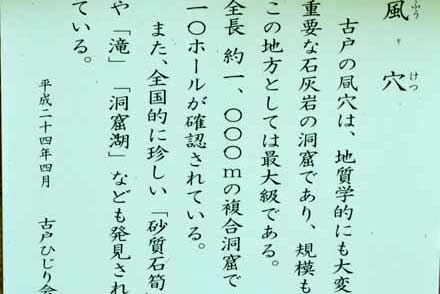 風穴
ふう
けつ
古戸の凬穴は、地質学的にも大変
重要な石灰岩の洞窟であり、規模も
この地方としては最大級である。
全長 約一、〇〇〇mの複合洞窟で
一〇ホールが確認されている。
また、全国的に珍しい「砂質石筍
や「滝」「洞窟湖」なども発見され
ている。
平成二十四年四月 古戸ひじり会